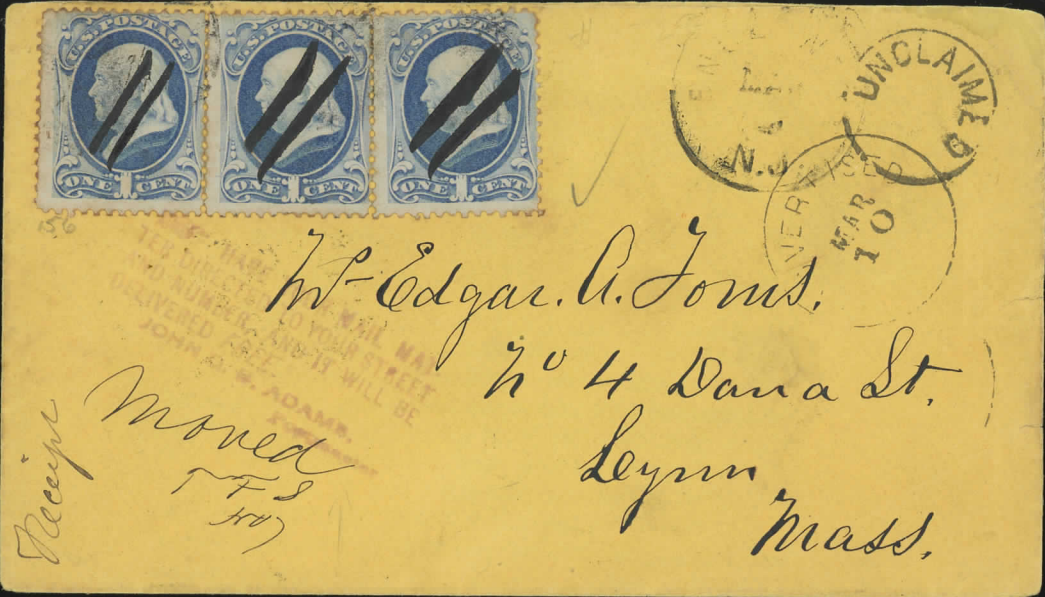 U.S. POSTAGE U.S. POSTAGE U.S. POSTAGE
ONE 1 CENT ONE 1 CENT ONE 1 CENT
N.J.
UNCLAIMED
VERTISED
MAR
10
56
HAVE MAIL MAT
TER DIRECTED TO YOUR STREET
AND NUMBER, AND IT WILL BE
DELIVERED FREE.
JOHN G. B. ADAMS,
Postmaster
Mr Edgar. A. Toms.
No 4 Dana St.
Leynn
Mass.
Moved
Receipt